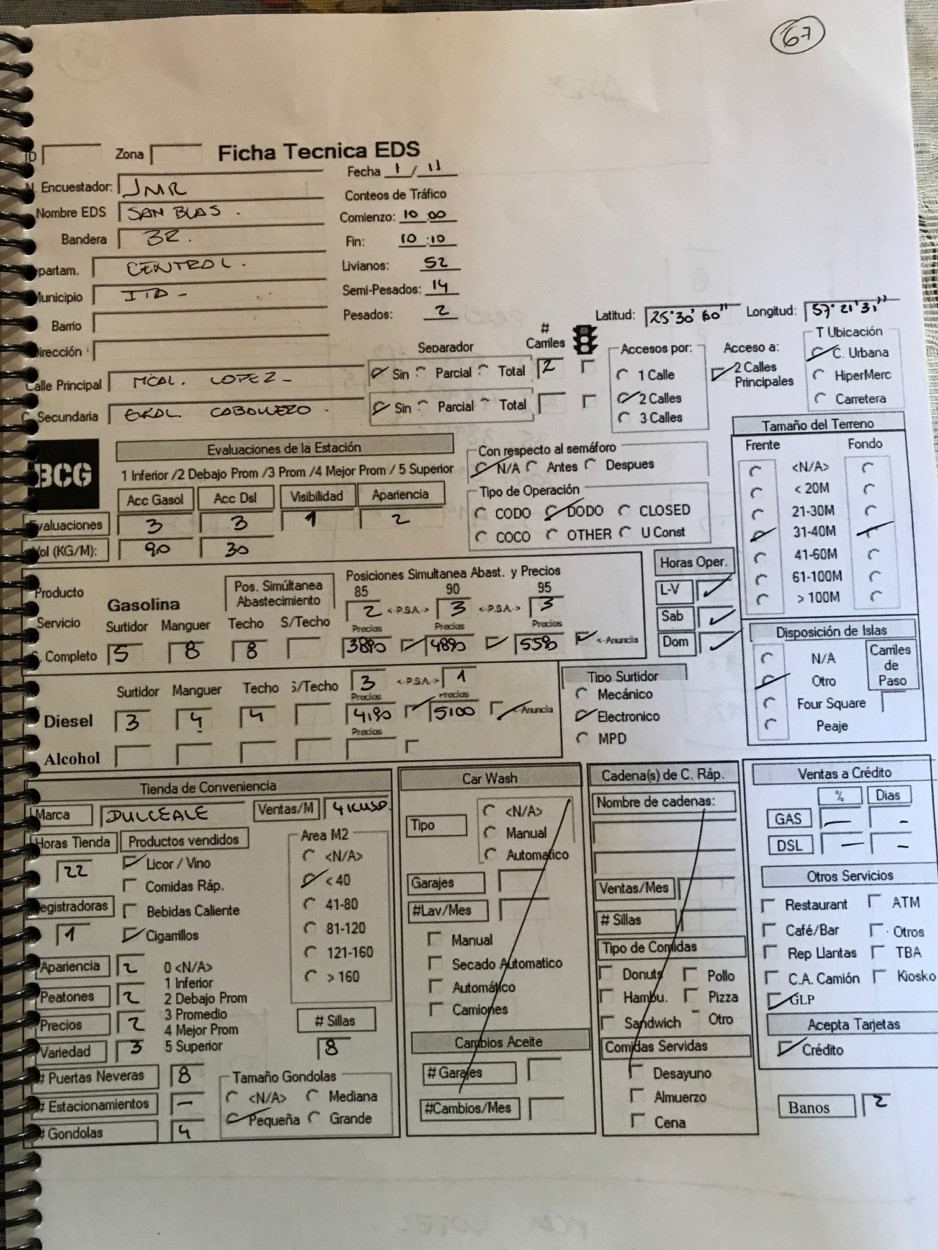 67
ID Zona Ficha Tecnica EDS
Fecha 1 / 11
Encuestador: JMR
Conteos de Tráfico
Nombre EDS SAN BLAS.
Comienzo: 10 00
Bandera
Fin: 10:10
partam. CENTRAL.
Livianos: 52
Municipio ITA -
Semi-Pesados: 14
Barrio
Pesados: 2
Latitud: 25°30' 60" Longitud: 57° 21' 31"
Dirección :
Calle Principal MCAL. LOPEZ -
C. Secundaria GRAL. CABALLERO.
Separador
# Carriles
Sin Parcial Total 2
Sin Parcial Total
Accesos por:
1 Calle
2 Calles
3 Calles
Acceso a:
2 Calles Principales
T Ubicación
C. Urbana
HiperMerc
Carretera
BCG
Evaluaciones de la Estación
1 Inferior /2 Debajo Prom /3 Prom /4 Mejor Prom / 5 Superior
Acc Gasol Acc Dsl Visibilidad Apariencia
Evaluaciones 3 3 1 2
Vol (KG/M): 90 30
Con respecto al semáforo
N/A Antes Despues
Tipo de Operación
CODO DODO CLOSED
COCO OTHER U Const
Tamaño del Terreno
Frente Fondo
<N/A>
< 20M
21-30M
31-40M
41-60M
61-100M
> 100M
Producto
Servicio
Gasolina
Pos. Simúltanea Abastecimiento
Posiciones Simultanea Abast. y Precios
85 90 95
2 <-P.S.A.-> 3 <-P.S.A.-> 3
Surtidor Manguer Techo S/Techo Precios Precios Precios
S. Completo 5 8 8 3890 4890 5590 <-Anuncia
Horas Oper.
L-V
Sab
Dom
Disposición de Islas
N/A
Otro
Four Square
Peaje
Carriles de Paso
Surtidor Manguer Techo S/Techo 3 <-P.S.A.-> 1
Precios Precios
Diesel 3 4 4 4190 5100 <-Anuncia
Precios
Alcohol
Tipo Surtidor
Mecánico
Electronico
MPD
Tienda de Conveniencia
Marca Ventas/M
Horas Tienda 22
Productos vendidos
Licor / Vino
Comidas Ráp.
Bebidas Caliente
Cigarrillos
Registradoras 1
Area M2
<N/A>
< 40
41-80
81-120
121-160
> 160
Apariencia 2
Peatones 2
Precios 2
Variedad 3
0 <N/A>
1 Inferior
2 Debajo Prom
3 Promedio
4 Mejor Prom
5 Superior
# Sillas
8
# Puertas Neveras 8
# Estacionamientos —
# Gondolas 4
Tamaño Gondolas
<N/A> Mediana
Pequeña Grande
Car Wash
Tipo
<N/A>
Manual
Automatico
Garajes
#Lav/Mes
Manual
Secado Automatico
Automático
Camiones
Cambios Aceite
# Garajes
#Cambios/Mes
Cadena(s) de C. Ráp.
Nombre de cadenas:
Ventas/Mes
# Sillas
Tipo de Comidas
Donuts Pollo
Hambu. Pizza
Sandwich Otro
Comidas Servidas
Desayuno
Almuerzo
Cena
Ventas a Crédito
% Dias
GAS — -
DSL — -
Otros Servicios
Restaurant ATM
Café/Bar Otros
Rep Llantas TBA
C.A. Camión Kiosko
GLP
Acepta Tarjetas
Crédito
Banos 2